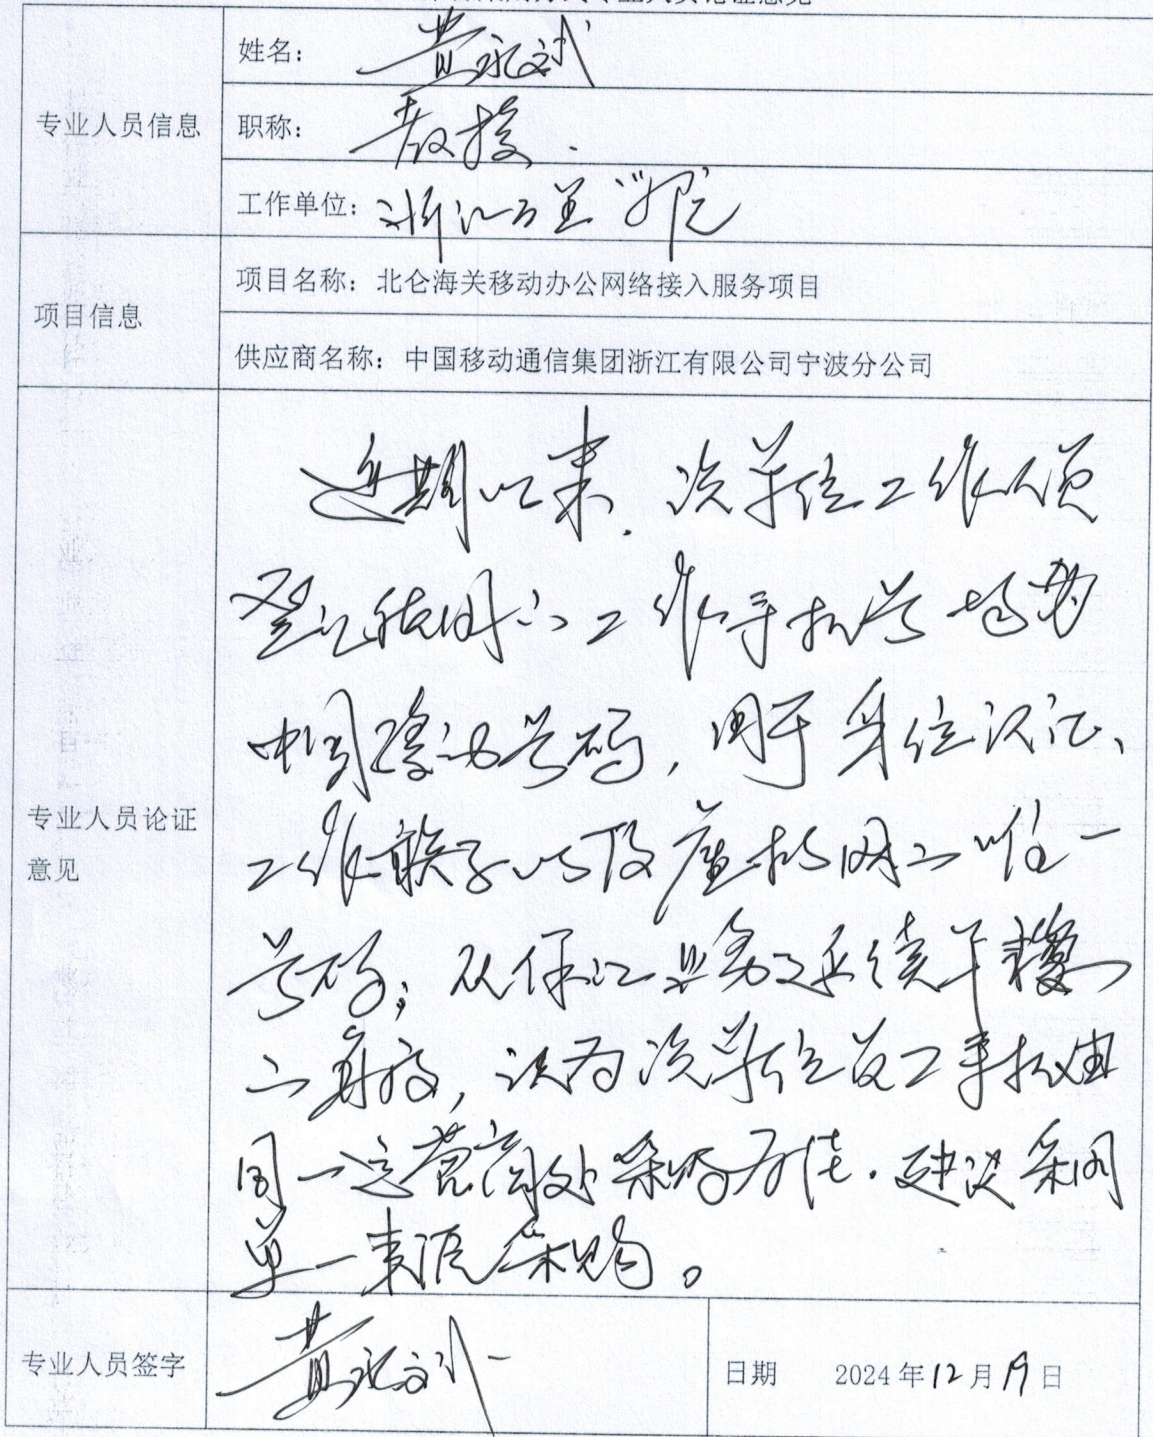 专业人员论证意见
专业人员信息
姓名：黄永斌
职称：教授.
工作单位：浙江万里学院
项目信息
项目名称：北仑海关移动办公网络接入服务项目
供应商名称：中国移动通信集团浙江有限公司宁波分公司
专业人员论证
意见
近期以来，该单位工作人员
登记使用的工作手机号均为
中国移动号码，用于身份认证、
工作联系以及虚拟网的唯一
号码；从保证业务延续
的角度，认为该单位员工手机由
同一运营商处采购为佳.建议采用
单一来源采购。
专业人员签字
黄永斌
日期 2024年12月19日